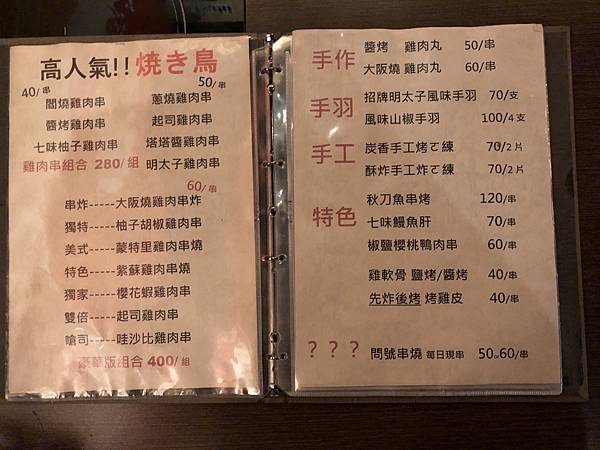 高人氣!! 焼き鳥
40/串
50/串
閻燒雞肉串
蔥燒雞肉串
醬烤雞肉串
起司雞肉串
七味柚子雞肉串
塔塔醬雞肉串
雞肉串組合 280/組
明太子雞肉串
60/串
串炸-----大阪燒雞肉串炸
獨特-----柚子胡椒雞肉串
美式-----蒙特里雞肉串燒
特色-----紫蘇雞肉串燒
獨家-----櫻花蝦雞肉串
雙倍-----起司雞肉串
嗆司-----哇沙比雞肉串
豪華版組合 400/組
手作
醬烤 雞肉丸 50/串
大阪燒 雞肉丸 60/串
手羽
招牌明太子風味手羽 70/支
風味山椒手羽 100/4支
手工
炭香手工烤ㄛ練 70/2片
酥炸手工炸ㄛ練 70/2片
特色
秋刀魚串烤 120/串
七味鰻魚肝 70/串
椒鹽櫻桃鴨肉串 60/串
雞軟骨 鹽烤/醬烤 40/串
先炸後烤 烤雞皮 40/串
？？？ 問號串燒 每日現串 50or60/串